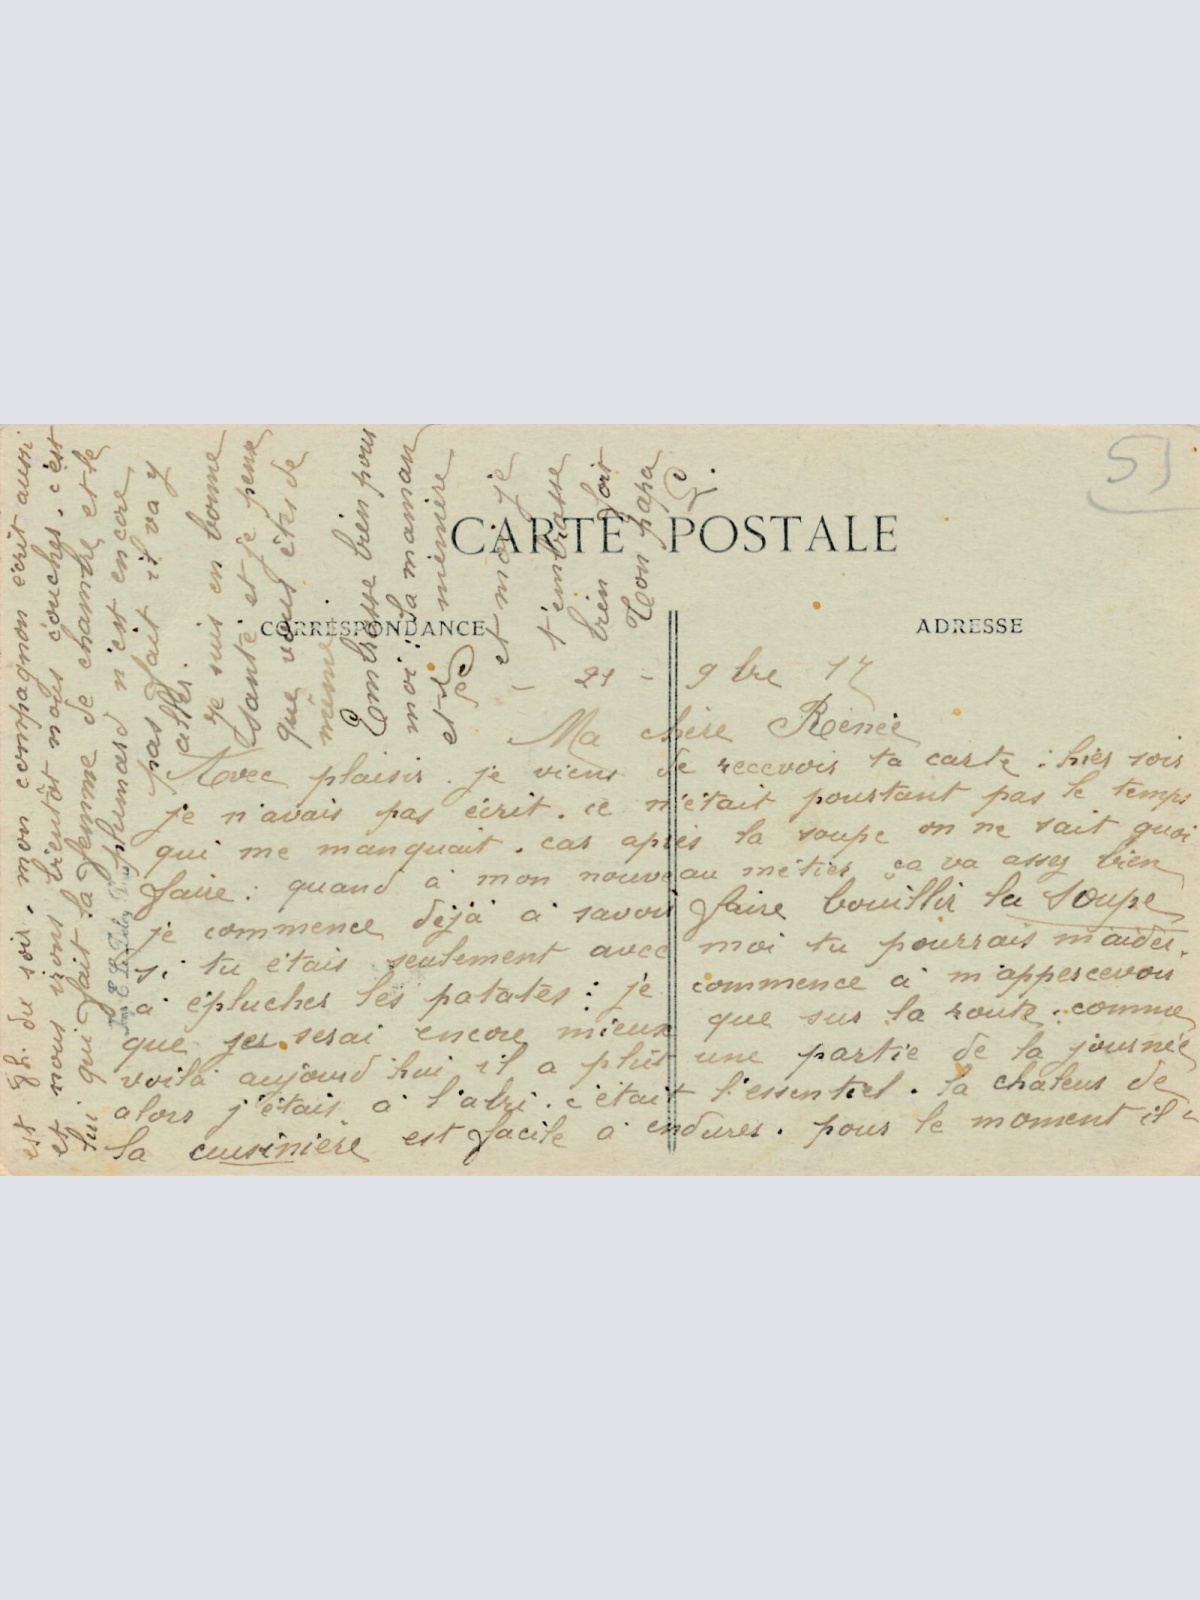 55
CARTE POSTALE
CORRESPONDANCE
ADRESSE
- 21 - 9bre 17
Ma chère Renée
Avec plaisir. je viens de recevoir ta carte : hier soir
je n'avais pas écrit. ce n'était pourtant pas le temps
qui me manquait. car après la soupe on ne sait quoi
faire : quand à mon nouveau métier ça va assez bien
je commence déjà à savoir faire bouillir la soupe
si tu étais seulement avec moi tu pourrais m'aider.
à éplucher les patates : je commence à m'appercevoir
que je serai encore mieux que sur la route. comme
voilà aujourd'hui il a plut une partie de la journée
alors j'étais à l'abri. c'était l'essentiel. la chaleur de
la cuisinière est facile à endurer. pour le moment il
est 8h. du soir. mon compagnon écrit aussi
et nous irons bientôt nous coucher. c'est
lui qui fait la femme de chambre et le
plumard n'est encore
pas fait il va y
aller.
je suis en bonne
santé et je pense
que vous êtes de
même.
Embrasse bien pour
moi ta maman
et mémère
et moi je
t'embrasse
bien fort
Ton papa